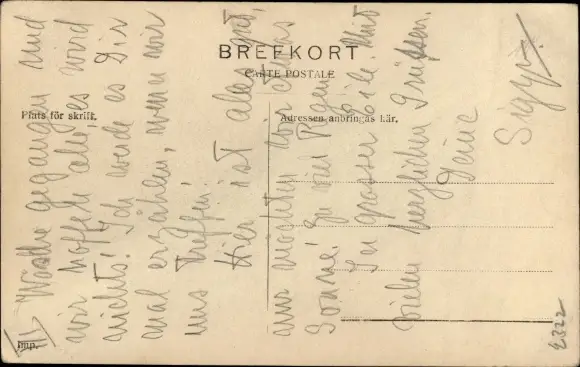 BREFKORT
CARTE POSTALE
Plats för skrift.
Adressen anbringas här.
Imp.
III
Woche gegangen und
wir hoffen alle, es wird
nichts! Ich werde es Dir
mal erzählen, wenn wir
uns treffen!
Hier ist alles gut,
nur möchten wir etwas
Sonne! Zu viel Regen!
In grosser Eile. Mit
vielen herzlichen Grüssen.
Deine